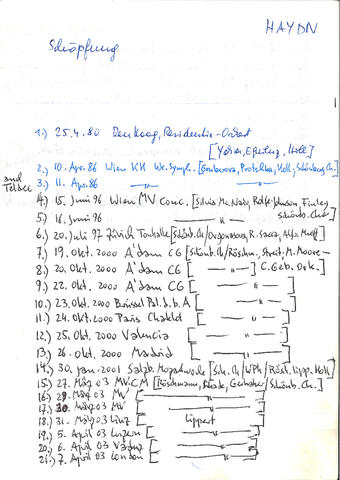 HAYDN
Schöpfung
1.) 25.4.80 Den Haag, Residentie-Orkest
[Yakar, Equiluz, Holl]
2.) 10. Apr. 86 Wien KH Wr. Symph. [Gruberova, Protschka, Holl, Schönberg Ch.]
and Teldec
3.) 11. Apr. 86 —"— —"—
4.) 15. Juni 96 Wien MV Conc. [Sylvia McNair, Rolfe-Johnson, Finley
5.) 16. Juni 96 —"— Schönb. Chor]
6.) 20. Juli 97 Zürich Tonhalle [Schönb. Ch/Orgonasova, R. Saccà, Alfr. Muff]
7.) 19. Okt. 2000 A'dam CG [Schönb. Ch/Röschm., Streit, M. Moore —
8.) 20. Okt. 2000 A'dam CG [—"— C. Geb. Ork.]
9.) 22. Okt. 2000 A'dam CG [—"—]
10.) 23 Okt. 2000 Brüssel Pal. d. b. A [—"—]
11.) 24. Okt. 2000 Paris Chatelet [—"—]
12.) 25. Okt. 2000 Valencia [—"—]
13.) 26. Okt. 2000 Madrid [—"—]
14.) 30. Jan. 2001 Salzb. Mozartwoche [Sch. Ch/WPh/Rösch. Lipp. Holl]
15.) 27. März 03 MV: CM [Röschmann, Schade, Gerhaher/Schönb. Ch.]
16.) 29. März 03 MV [—"—]
17.) 30. März 03 MV [—"—]
18.) 31. März 03 Linz [Lippert]
19.) 5. April 03 Luzern [—"—]
20.) 6. April 03 [—"—]
21.) 7. April 03 London [—"—]